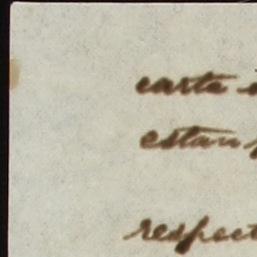 carta
estan
respect